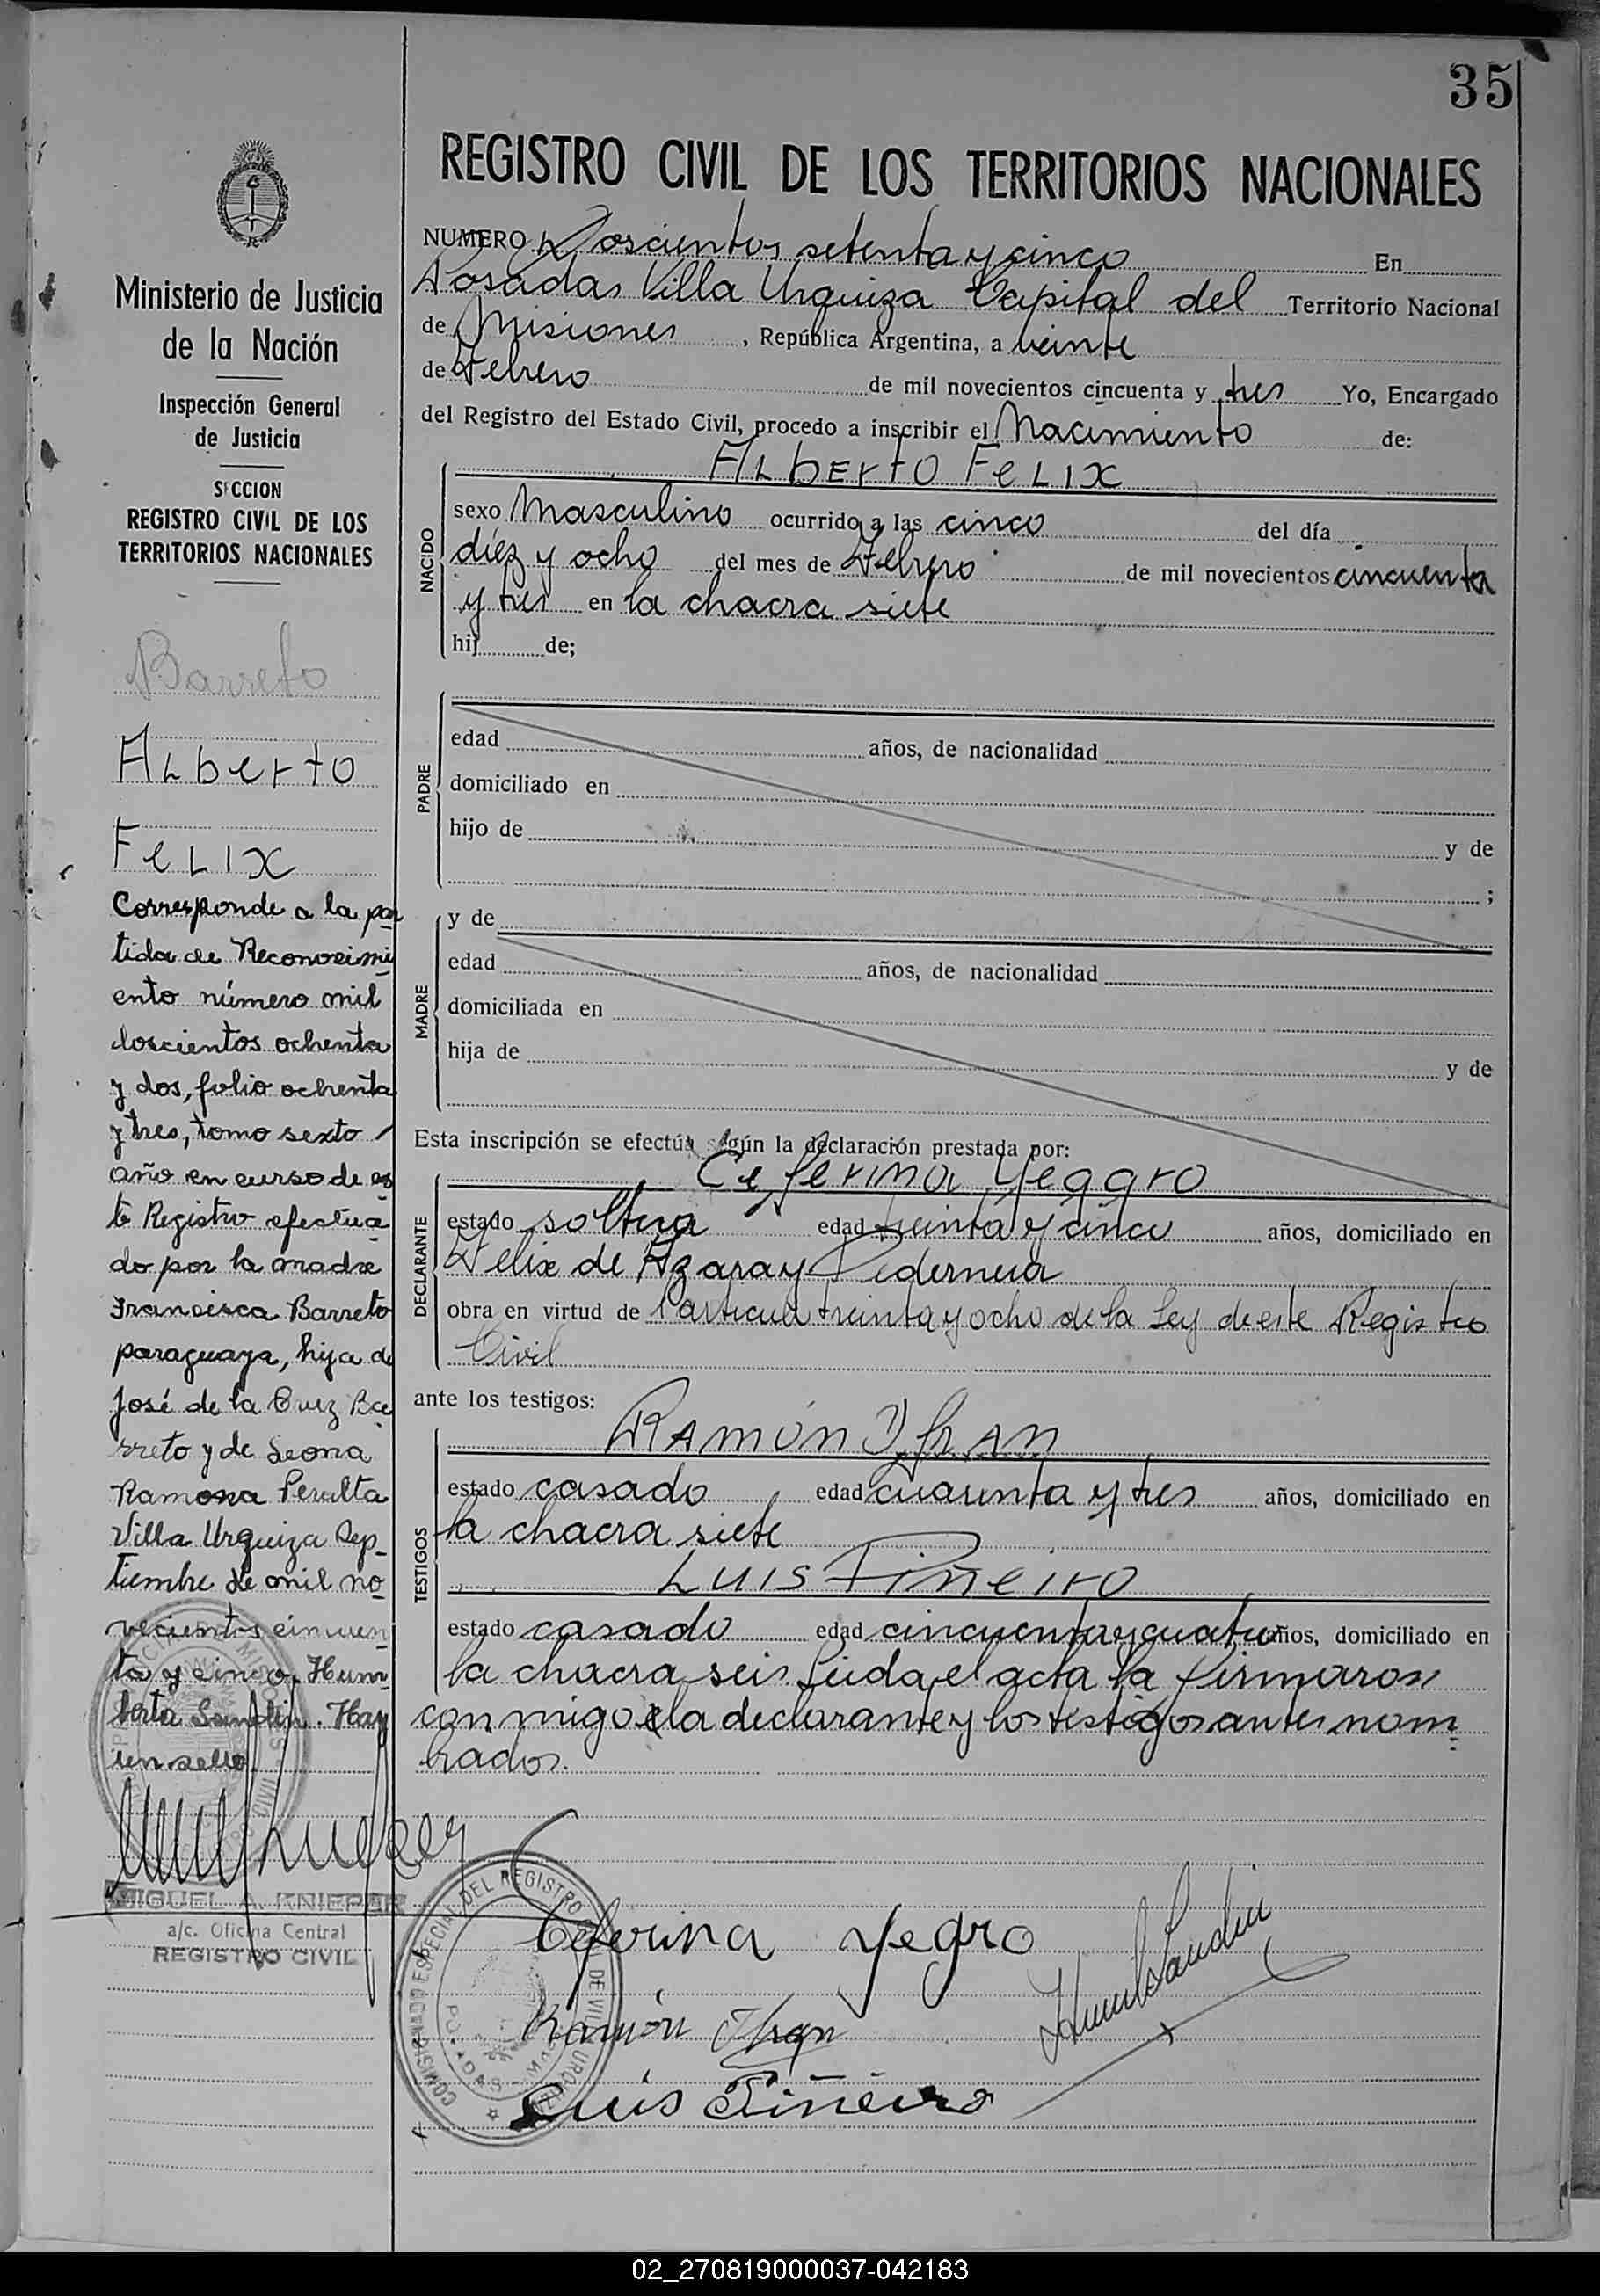 35
REGISTRO CIVIL DE LOS TERRITORIOS NACIONALES
NUMERO Doscientos setenta y cinco En
Posadas Villa Urquiza Capital del Territorio Nacional
de Misiones, República Argentina, a veinte
de Febrero de mil novecientos cincuenta y tres Yo, Encargado
del Registro del Estado Civil, procedo a inscribir el Nacimiento de:
ALberto FeLIX
NACIDO
sexo Masculino ocurrido a las cinco del día
diez y ocho del mes de Febrero de mil novecientos cincuenta
y tres en la chacra siete
hij de;
PADRE
edad años, de nacionalidad
domiciliado en
hijo de y de
;
MADRE
y de
edad años, de nacionalidad
domiciliada en
hija de y de
Esta inscripción se efectúa según la declaración prestada por:
DECLARANTE
Ceferina Yegros
estado soltera edad treinta y cinco años, domiciliado en
Felix de Azara y Pedernera
obra en virtud de l'articulo treinta y ocho de la Ley de este Registro
Civil
ante los testigos:
TESTIGOS
RAMÓN IfRAN
estado casado edad cuarenta y tres años, domiciliado en
la chacra siete
LUIS PIÑeiro
estado casado edad cincuenta y cuatro años, domiciliado en
la chacra seis Leida el acta la firmaron
conmigo la declarante y los testigos antes nom
brados.
Ceferina Yegro
Ramón Ifran
Luis Piñeiro
Humb Sandin
COMISIONADO ESPECIAL DEL REGISTRO DE VILLA URQUIZA
POSADAS
Ministerio de Justicia
de la Nación
Inspección General
de Justicia
SECCION
REGISTRO CIVIL DE LOS
TERRITORIOS NACIONALES
Barreto
ALberto
FeLIX
Corresponde a la par
tida de Reconocimi
ento número mil
doscientos ochenta
y dos, folio ochenta
y tres, tomo sexto
año en curso de es
te Registro efectua
do por la madre
Francisca Barreto
paraguaya, hija de
José de la Cruz Ba
rreto y de Leona
Ramona Peralta
Villa Urquiza Sep
tiembre de mil no
vecientos cincuen
ta y cinco. Hum
berto Sandin. Hay
un sello
MIGUEL A. KNIEPER
a/c. Oficina Central
REGISTRO CIVIL
02_270819000037-042183